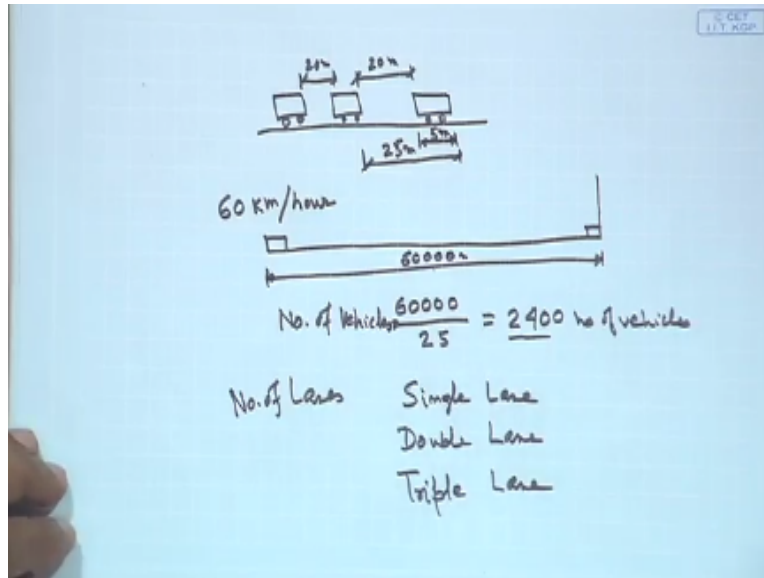 © CET
I.I.T. KGP
20m
20m
5m
25m
60 Km/hour
60000m
No. of Vehicles = 60000 / 25 = 2400 no of vehicles
No. of Lanes
Single Lane
Double Lane
Triple Lane